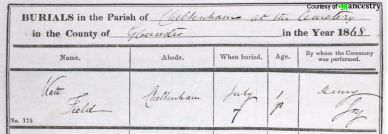 Courtesy of ancestry
BURIALS in the Parish of Cheltenham at the Cemetery
in the County of Gloucester in the Year 1868
Name. Abode. When buried. Age. By whom the Ceremony was performed.
Kate Field Cheltenham July 7 Henry
No. 175